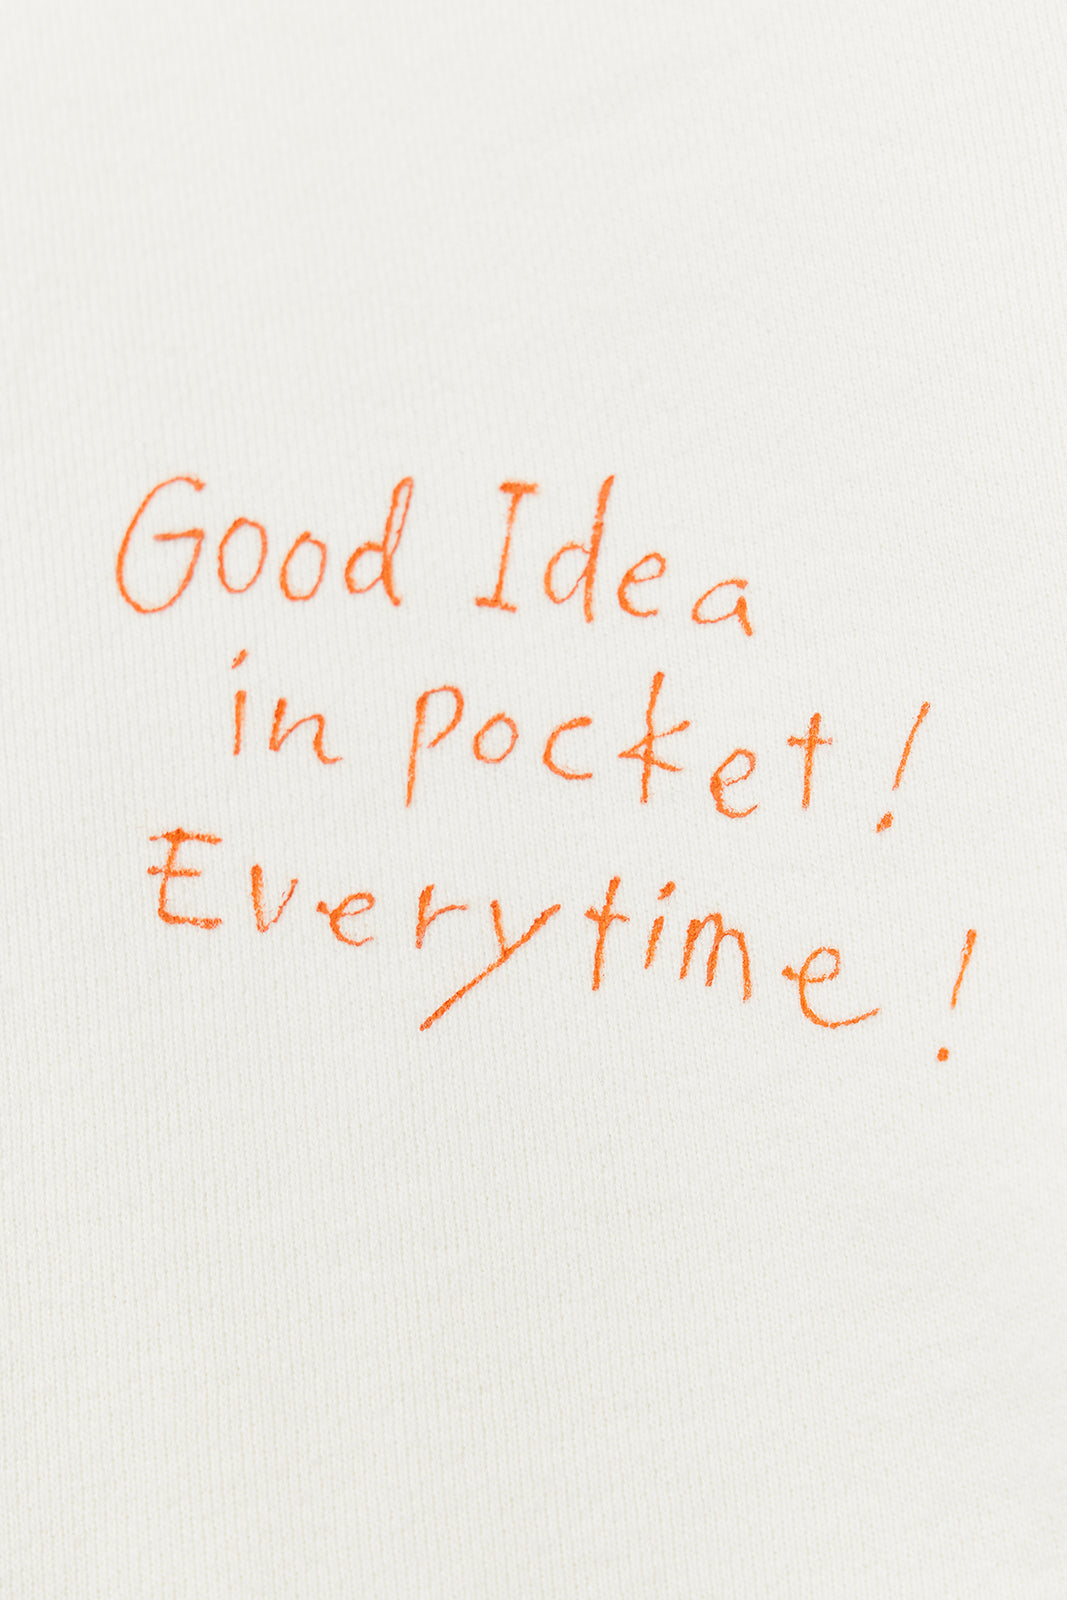 Good Idea
in pocket!
Everytime!